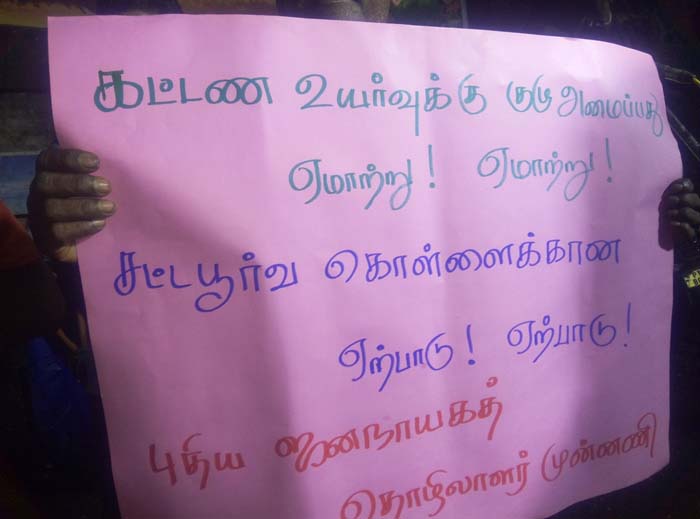 கட்டண உயர்வுக்கு குழு அமைப்பது
ஏமாற்று! ஏமாற்று!
சட்டபூர்வ கொள்ளைக்கான
ஏற்பாடு! ஏற்பாடு!
புதிய ஜனநாயகத்
தொழிலாளர் முன்னணி